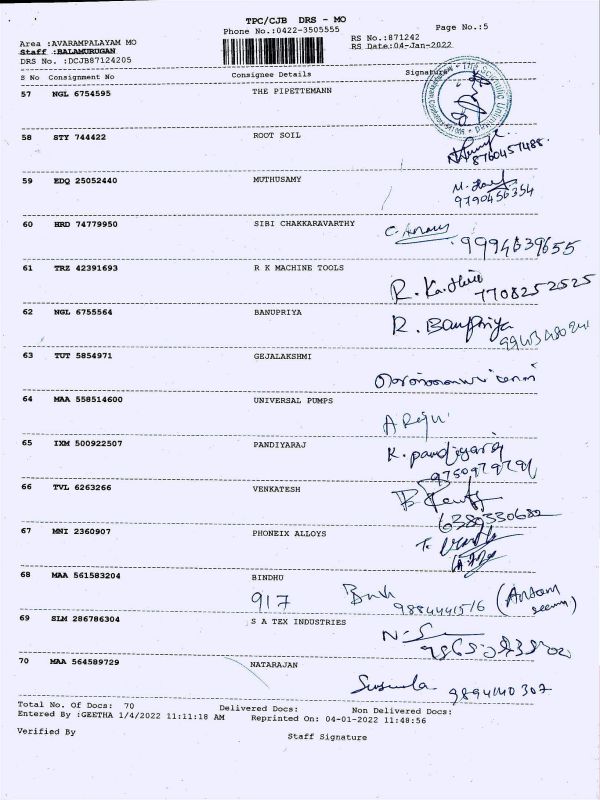 TPC/CJB DRS - MO
Phone No.:0422-3505555 Page No.:5
Area :AVARAMPALAYAM MO RS No.:871242
Staff :BALAMURUGAN RS Date:04-Jan-2022
DRS No. :DCJB87124205
S No Consignment No Consignee Details Signature
57 NGL 6754595 THE PIPETTEMANN
58 STY 744422 ROOT SOIL
8760457488.
59 EDQ 25052440 MUTHUSAMY
9790456354
60 HRD 74779950 SIBI CHAKKARAVARTHY
9994639655
61 TRZ 42391693 R K MACHINE TOOLS
7708252525
62 NGL 6755564 BANUPRIYA
R. Banupriya
63 TUT 5854971 GEJALAKSHMI
64 MAA 558514600 UNIVERSAL PUMPS
65 IXM 500922507 PANDIYARAJ
K. pandiyaraj
66 TVL 6263266 VENKATESH
6380330682
67 MNI 2360907 PHONEIX ALLOYS
68 MAA 561583204 BINDHU
917
69 SLM 286786304 S A TEX INDUSTRIES
70 MAA 564589729 NATARAJAN
Suseela 9894140307
Total No. Of Docs: 70 Delivered Docs: Non Delivered Docs:
Entered By :GEETHA 1/4/2022 11:11:18 AM Reprinted On: 04-01-2022 11:48:56
Verified By Staff Signature